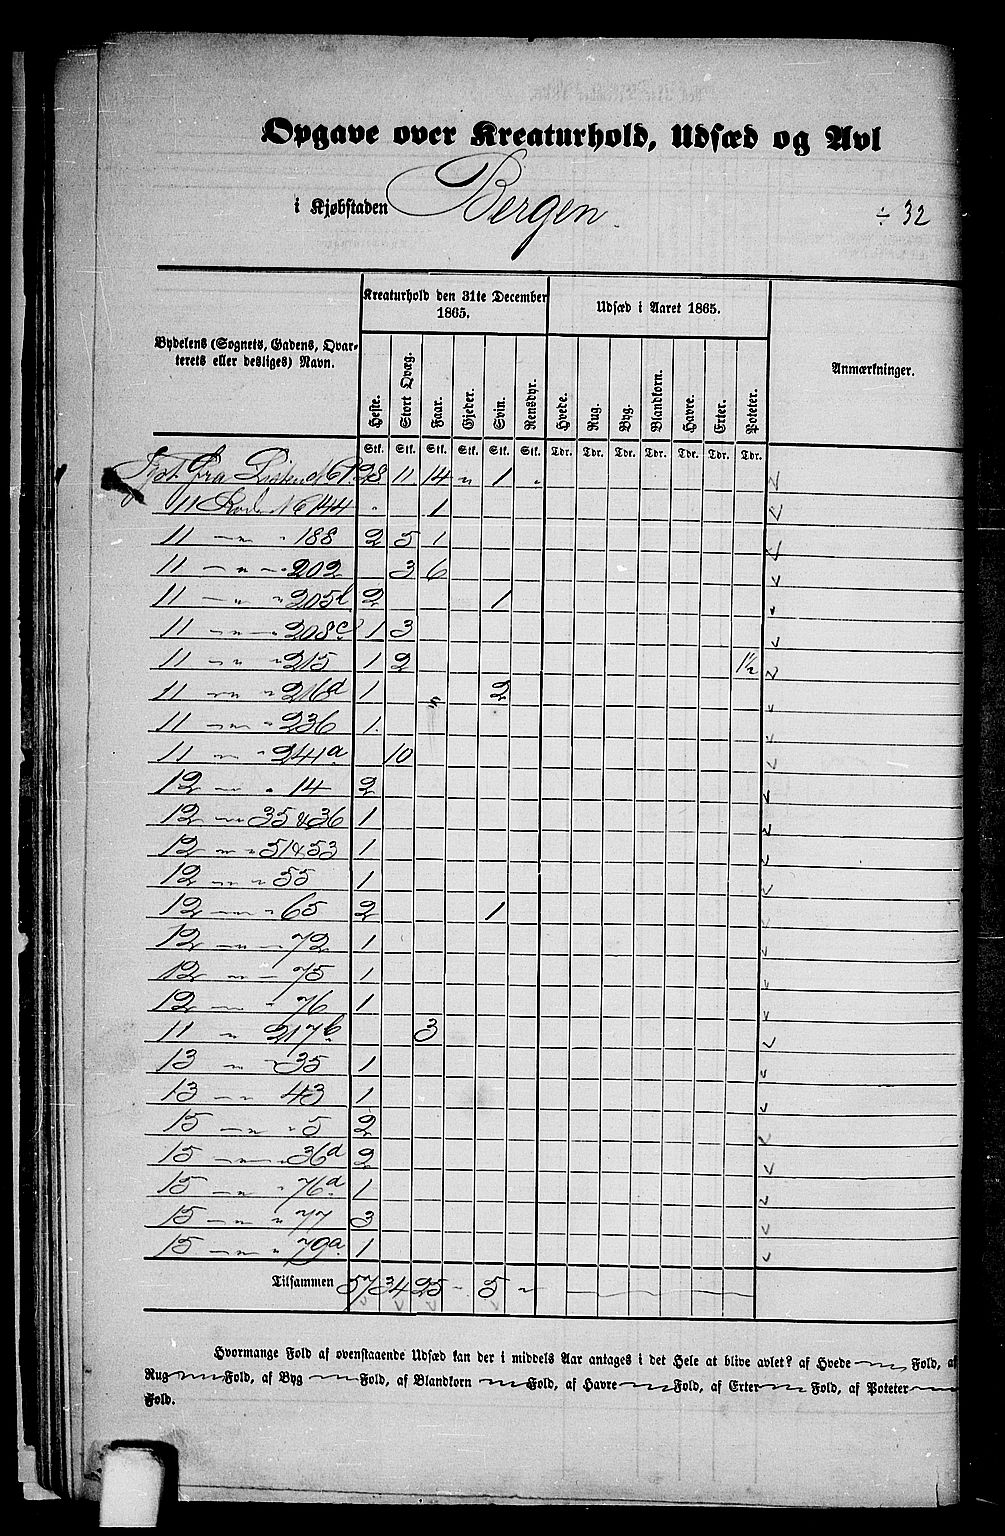 Opgave over Kreaturhold, Udsæd og Avl
i Kjøbstaden Bergen.
÷ 32
Bydelens (Sognets, Gadens, Qvarterets eller desliges) Navn. | Kreaturhold den 31te December 1865. | Udsæd i Aaret 1865. | Anmærkninger.
Heste. | Stort Qvæg. | Faar. | Gjeder. | Sviin. | Rensdyr. | Hvede. | Rug. | Byg. | Blandkorn. | Havre. | Erter. | Poteter.
Stk. Stk. Stk. Stk. Stk. Stk. Tdr. Tdr. Tdr. Tdr. Tdr. Tdr. Tdr.
fra 28 11 14 " 1 "
11 Rode No 144 " 1
11 — " — " 188 2 5 1
11 — " — " 202 3 6
11 — " — " 205b 2 1
11 — " — 208c 1 3
11 — " — " 215 1 2 1½
11 — " — " 216a 1 2
11 — " — " 236 1.
11 — " — " 241a 10
12 — " — " 14 2
12 — " — 35 & 36 1
12 — " — " 51 & 53 1
12 — " — " 55 1
12 — " — " 65 2 1
12 — " — 72 1
12 — " — 75 1
12 — " — " 76 1
11 " 217b 3
13 — " — 35 1
13 — " — 43 1
15 — " — " 5 2
15 — " — 36a 2
15 — " — " 76a 1
15 — " — " 77 3
15 — " — " 79a 1
Tilsammen 57 34 25 — 5 "
Hvormange Fold af ovenstaaende Udsæd kan der i middels Aar antages i det Hele at blive avlet? af Hvede — " — Fold, af
Rug — " — Fold, af Byg — " — Fold, af Blandkorn — " — Fold, af Havre — " — Fold, af Erter — " — Fold, af Poteter — " —
Fold.